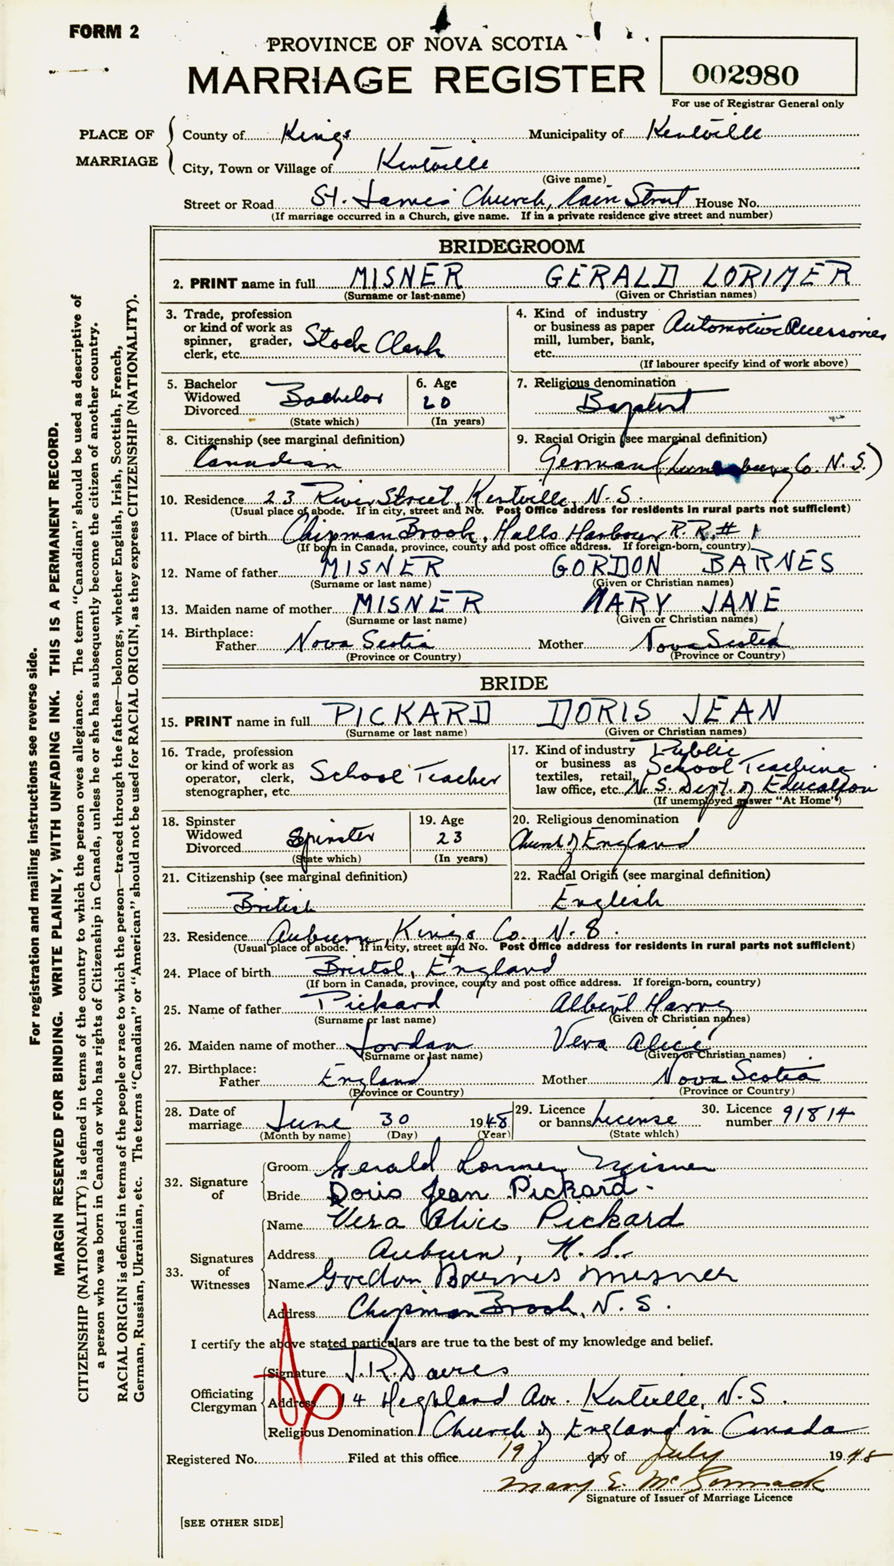 FORM 2
PROVINCE OF NOVA SCOTIA
MARRIAGE REGISTER
002980
For use of Registrar General only
PLACE OF MARRIAGE
County of Kings Municipality of Kentville
City, Town or Village of Kentville
(Give name)
Street or Road St. James Church, Main Street House No.
(If marriage occurred in a Church, give name. If in a private residence give street and number)
BRIDEGROOM
2. PRINT name in full MISNER GERALD LORIMER
(Surname or last name) (Given or Christian names)
3. Trade, profession or kind of work as spinner, grader, clerk, etc. Stock Clerk
4. Kind of industry or business as paper mill, lumber, bank, etc. Automotive Accessories
(If labourer specify kind of work above)
5. Bachelor Widowed Divorced Bachelor
(State which)
6. Age 20
(In years)
7. Religious denomination
Baptist
8. Citizenship (see marginal definition)
Canadian
9. Racial Origin (see marginal definition)
German (Lunenburg Co. N.S.)
10. Residence 23 River Street, Kentville, N.S.
(Usual place of abode. If in city, street and No. Post Office address for residents in rural parts not sufficient)
11. Place of birth Chipman Brook, Halls Harbour R.R. # 1
(If born in Canada, province, county and post office address. If foreign-born, country)
12. Name of father MISNER GORDON BARNES
(Surname or last name) (Given or Christian names)
13. Maiden name of mother MISNER MARY JANE
(Surname or last name) (Given or Christian names)
14. Birthplace: Father Nova Scotia Mother Nova Scotia
(Province or Country) (Province or Country)
BRIDE
15. PRINT name in full PICKARD DORIS JEAN
(Surname or last name) (Given or Christian names)
16. Trade, profession or kind of work as operator, clerk, stenographer, etc. School Teacher
17. Kind of industry or business as textiles, retail, law office, etc. Public School Teaching N.S. Dept. of Education
(If unemployed answer "At Home")
18. Spinster Widowed Divorced Spinster
(State which)
19. Age 23
(In years)
20. Religious denomination
Church of England
21. Citizenship (see marginal definition)
British
22. Racial Origin (see marginal definition)
English
23. Residence Auburn, Kings Co., N.S.
(Usual place of abode. If in city, street and No. Post Office address for residents in rural parts not sufficient)
24. Place of birth Bristol, England
(If born in Canada, province, county and post office address. If foreign-born, country)
25. Name of father Pickard Albert Harry
(Surname or last name) (Given or Christian names)
26. Maiden name of mother Jordan Vera Alice
(Surname or last name) (Given or Christian names)
27. Birthplace: Father England Mother Nova Scotia
(Province or Country) (Province or Country)
28. Date of marriage June 30 1948
(Month by name) (Day) (Year)
29. Licence or banns License
(State which)
30. Licence number 91814
32. Signature of
Groom Gerald Lorimer Misner
Bride Doris Jean Pickard
33. Signatures of Witnesses
Name Vera Alice Pickard
Address Auburn, N.S.
Name Gordon Barnes Misner
Address Chipman Brook, N.S.
I certify the above stated particulars are true to the best of my knowledge and belief.
Officiating Clergyman
Signature J.R. Davies
Address 14 Highland Ave. Kentville, N.S.
Religious Denomination Church of England in Canada
Registered No. Filed at this office 19 day of July 1948
Mary E. McCormack
Signature of Issuer of Marriage Licence
[SEE OTHER SIDE]
For registration and mailing instructions see reverse side.
MARGIN RESERVED FOR BINDING. WRITE PLAINLY, WITH UNFADING INK. THIS IS A PERMANENT RECORD.
CITIZENSHIP (NATIONALITY) is defined in terms of the country to which the person owes allegiance. The term "Canadian" should be used as descriptive of
a person who was born in Canada or who has rights of Citizenship in Canada, unless he or she has subsequently become the citizen of another country.
RACIAL ORIGIN is defined in terms of the people or race to which the person—traced through the father—belongs, whether English, Irish, Scottish, French,
German, Russian, Ukrainian, etc. The terms "Canadian" or "American" should not be used for RACIAL ORIGIN, as they express CITIZENSHIP (NATIONALITY).